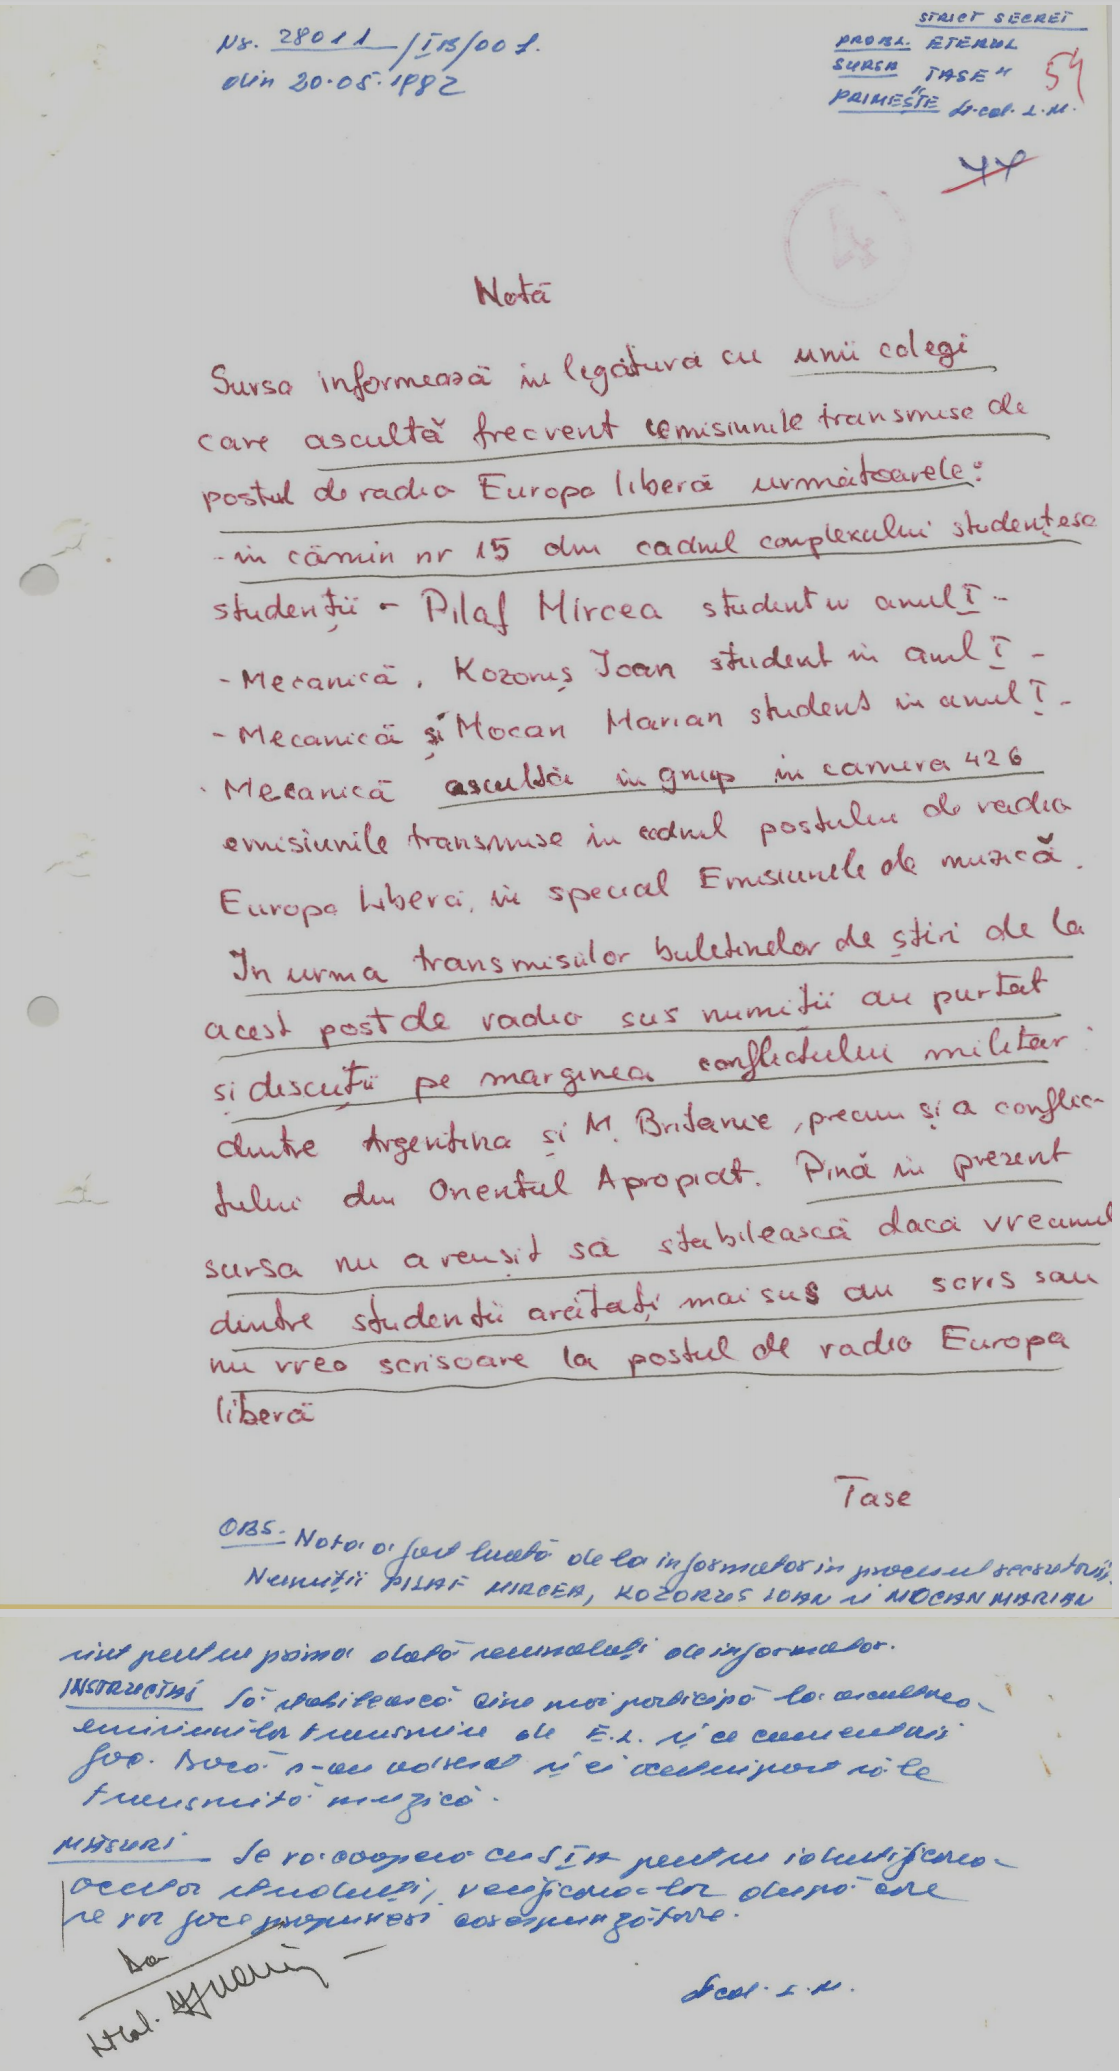 Nr. 28011/IB/001.
din 20.05.1982
STRICT SECRET
PROBL. ETERUL
SURSA "TASE"
PRIMEȘTE Lt.col. L.M.
54
44
4
Notă
Sursa informează in legătură cu unii colegi
care ascultă frecvent emisiunile transmise de
postul de radio Europa liberă următoarele:
- in cămin nr 15 din cadrul complexului studențesc
studenții - Pilaf Mircea student in anul I -
- Mecanică, Kozoruș Ioan student in anul I -
- Mecanică și Mocan Marian student in anul I -
Mecanică ascultă in grup in camera 426
emisiunile transmise in cadrul postului de radio
Europa liberă, in special Emisiunele de muzică.
In urma transmisiilor buletinelor de știri de la
acest post de radio sus numiții au purtat
și discuții pe marginea conflictului militar
dintre Argentina și M. Britanie, precum și a conflic-
tului din Orientul Apropiat. Pină in prezent
sursa nu a reușit să stabilească daca vreunul
dintre studenții arcitați mai sus au scris sau
nu vreo scrisoare la postul de radio Europa
liberă
Tase
OBS. Nota a fost luată de la informator in procesul recrutării.
Numiții PILAF MIRCEA, KOZORUS IOAN și MOCAN MARIAN
sint pentru prima dată semnalați de informator.
INSTRUCTAJ Să stabilească cine mai participă la ascultarea
emisiunilor transmise de E.L. și ce comentarii
fac. Dacă s-au adresat și ei acestui post să le
transmită muzică.
MĂSURI Se va coopera cu S I A pentru identificarea
acestor studenți, verificarea lor după care
se vor face propuneri corespunzătoare.
Da
Lt.col.
Lt col. L.M.